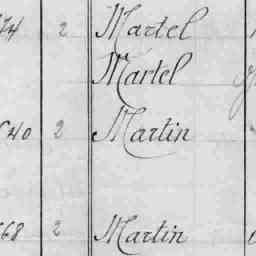 74 2 Martel
Martel
640 2 Martin
68 2 Martin